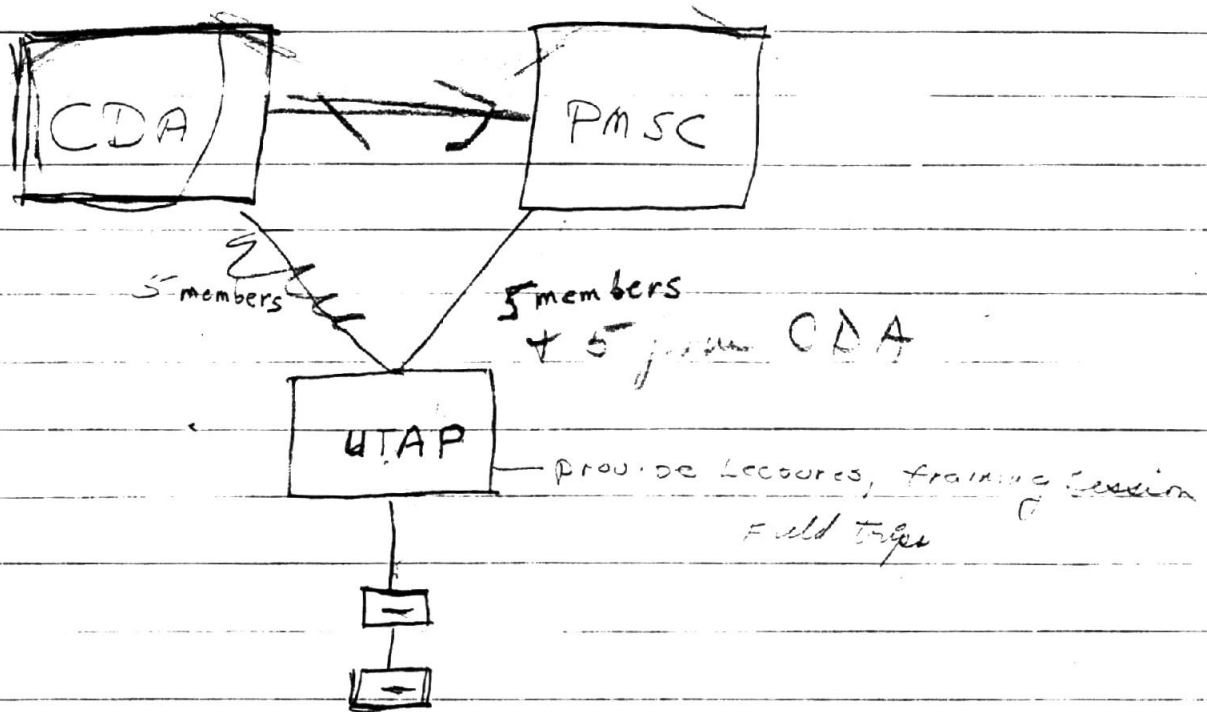 CDA
PMSC
5 members
5 members
+ 5 from CDA
UTAP
provide Lectures, training Session
Field Trips